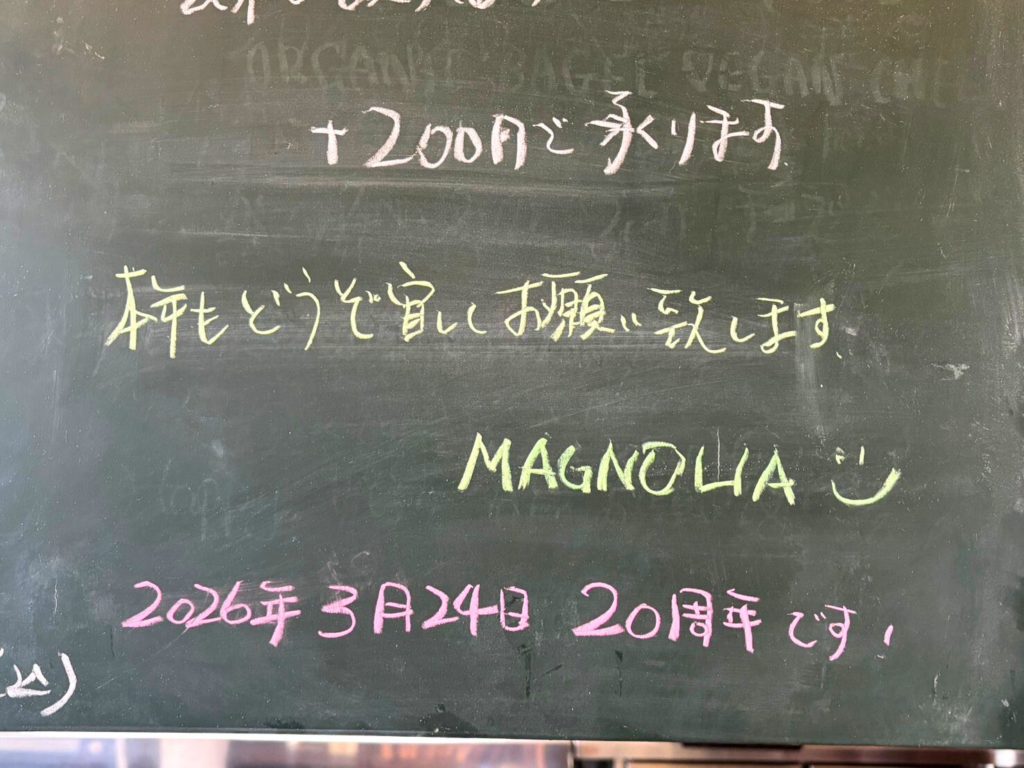 ORGANIC BAGEL VEGAN
+200円で承ります
本年もどうぞ宜しくお願い致します.
MAGNOLIA
2026年3月24日 20周年です!
込)